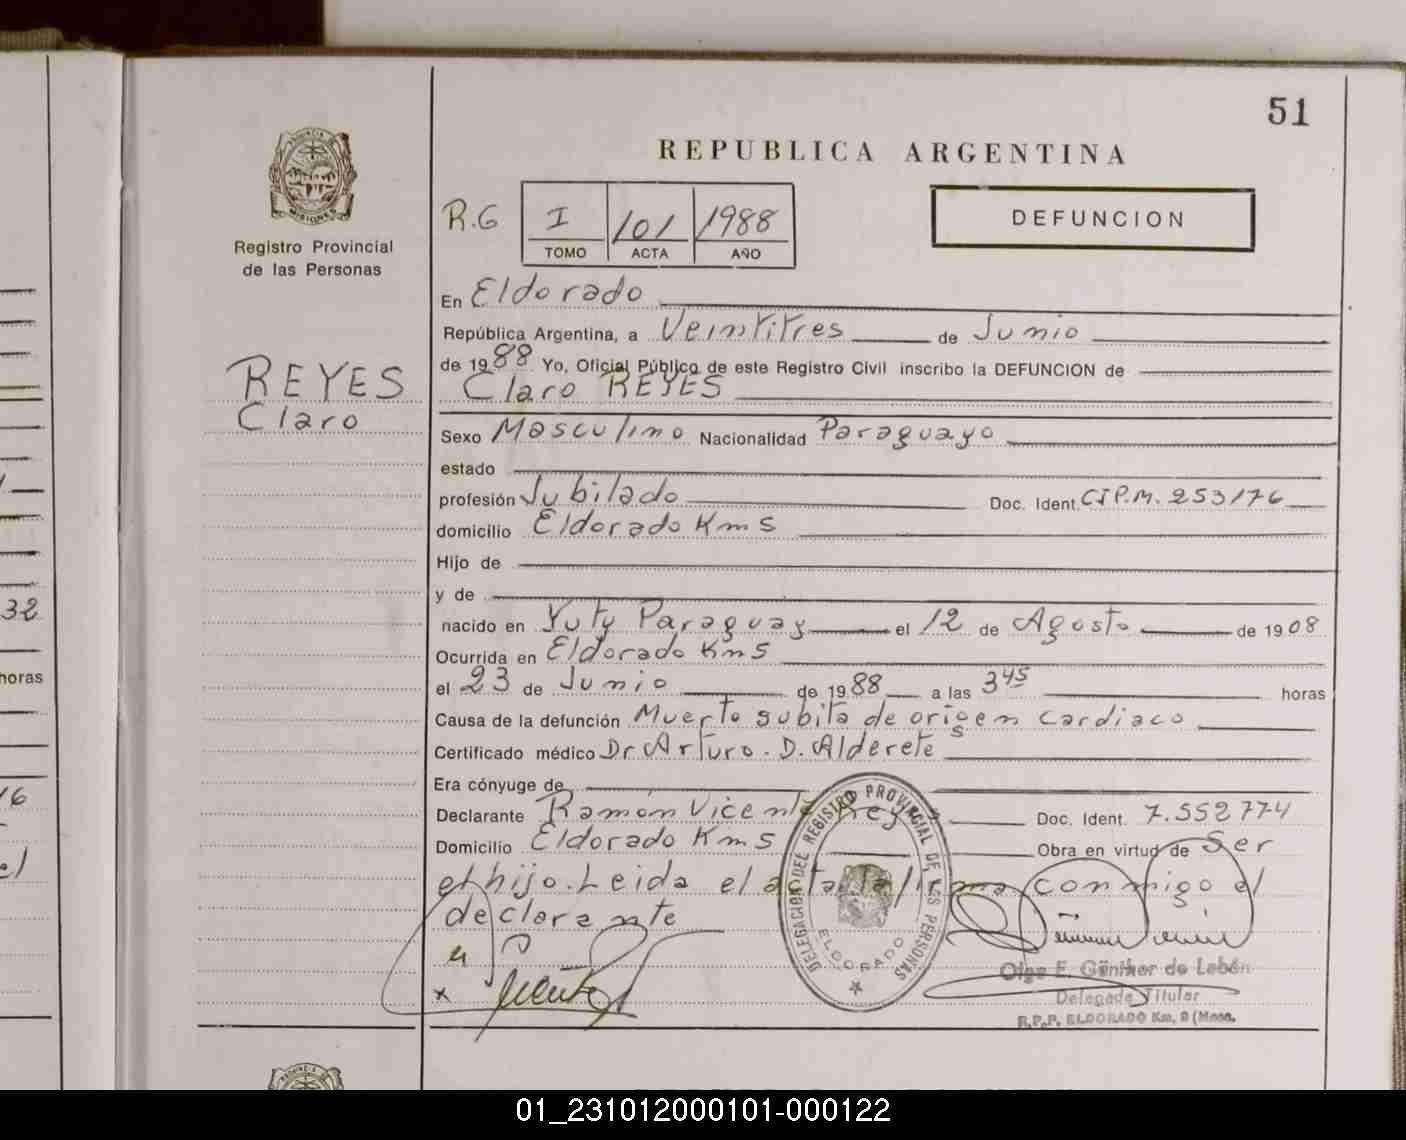 51
REPUBLICA ARGENTINA
PROVINCIA DE
MISIONES
Registro Provincial
de las Personas
R.G I 101 1988
TOMO ACTA AÑO
DEFUNCION
REYES
Claro
En Eldorado
República Argentina, a Veintitres de Junio
de 1988 Yo, Oficial Público de este Registro Civil inscribo la DEFUNCION de
Claro REYES
Sexo Masculino Nacionalidad Paraguayo
estado
profesión Jubilado Doc. Ident. CIP.M. 253176
domicilio Eldorado Km 5
Hijo de
y de
nacido en Yuty Paraguay el 12 de Agosto de 1908
Ocurrida en Eldorado Km 5
el 23 de Junio de 1988 a las 3 45 horas
Causa de la defunción Muerto subita de origen cardiaco
Certificado médico Dr. Arturo. D. Alderete
Era cónyuge de
Declarante Ramón Vicente Reyes Doc. Ident. 7.552774
Domicilio Eldorado Km 5 Obra en virtud de Ser
el hijo. Leida el acta la firma conmigo el
declarante
DELEGACION DEL REGISTRO PROVINCIAL DE LAS PERSONAS
ELDORADO
Olga E. Günther de Lebén
Delegada Titular
R.P.P. ELDORADO Km. 9 (Mnes.
32
horas
01_231012000101-000122